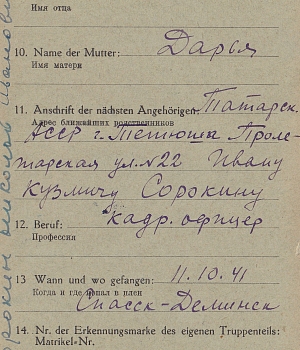 Имя отца
10. Name der Mutter: Дарья
Имя матери
11. Anschrift der nächsten Angehörigen: Татарск.
Адрес ближайших родственников
АССР г. Тетюша Проле-
тарская ул. №22 Ивану
Кузмичу Сорокину
12. Beruf: Кадр. офицер
Профессия
13 Wann und wo gefangen: 11.10.41
Когда и где попал в плен
Спасск-Деминск
14. Nr. der Erkennungsmarke des eigenen Truppenteils:
Matrikel-Nr.
орокин Николай Иванови